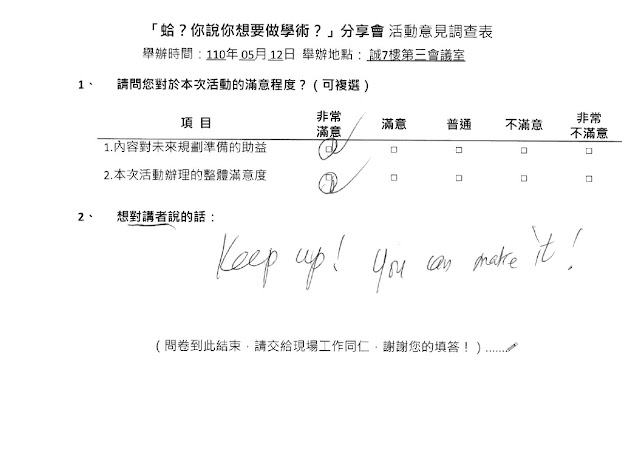 「蛤？你說你想要做學術？」分享會 活動意見調查表
舉辦時間：110年05月12日 舉辦地點：誠7樓第三會議室
1、 請問您對於本次活動的滿意程度？(可複選)
項目 非常滿意 滿意 普通 不滿意 非常不滿意
1.內容對未來規劃準備的助益 □ □ □ □ □
2.本次活動辦理的整體滿意度 □ □ □ □ □
2、 想對講者說的話：
Keep up! You can make it!
(問卷到此結束，請交給現場工作同仁，謝謝您的填答！)......